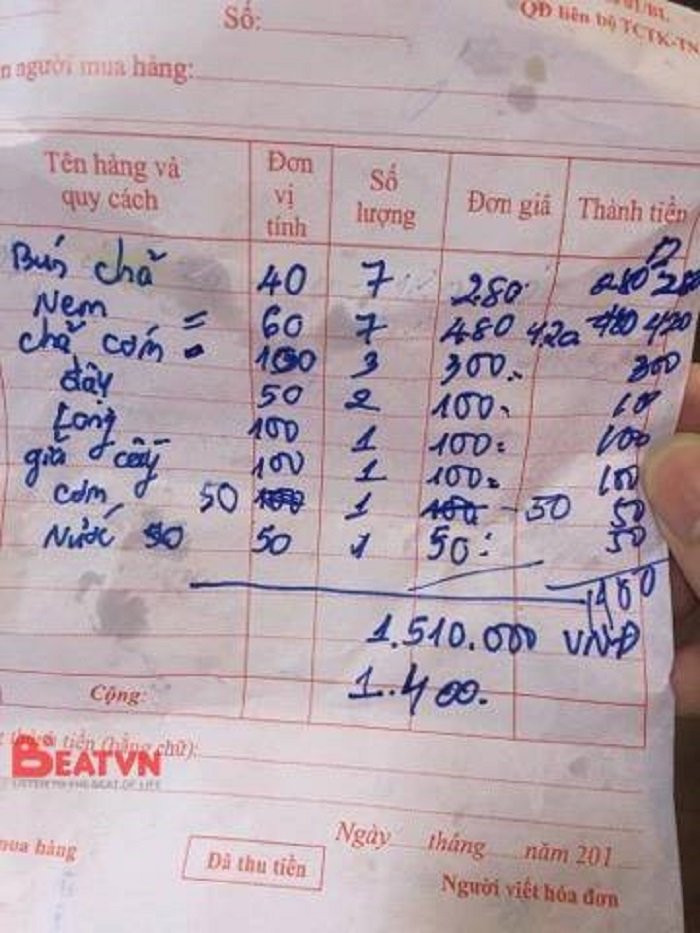 Số:
01/BL
QĐ liên bộ TCTK-TN
n người mua hàng:
Tên hàng và quy cách Đơn vị tính Số lượng Đơn giá Thành tiền
Bún chả 40 7 280 280 280
Nem = 60 7 480 420 480 420
chả cơm 100 3 300 300
đậy 50 2 100 100
Lòng 100 1 100 100
giả cầy 100 1 100 100
cơm 50 100 1 100 - 50 50
Nước 50 50 1 50 50
1400
1.510.000 VNĐ
1.400.
Cộng:
tiền (bằng chữ):
BEATVN
LISTEN TO THE BEAT OF LIFE
Ngày tháng năm 201
mua hàng
Đã thu tiền
Người viết hóa đơn